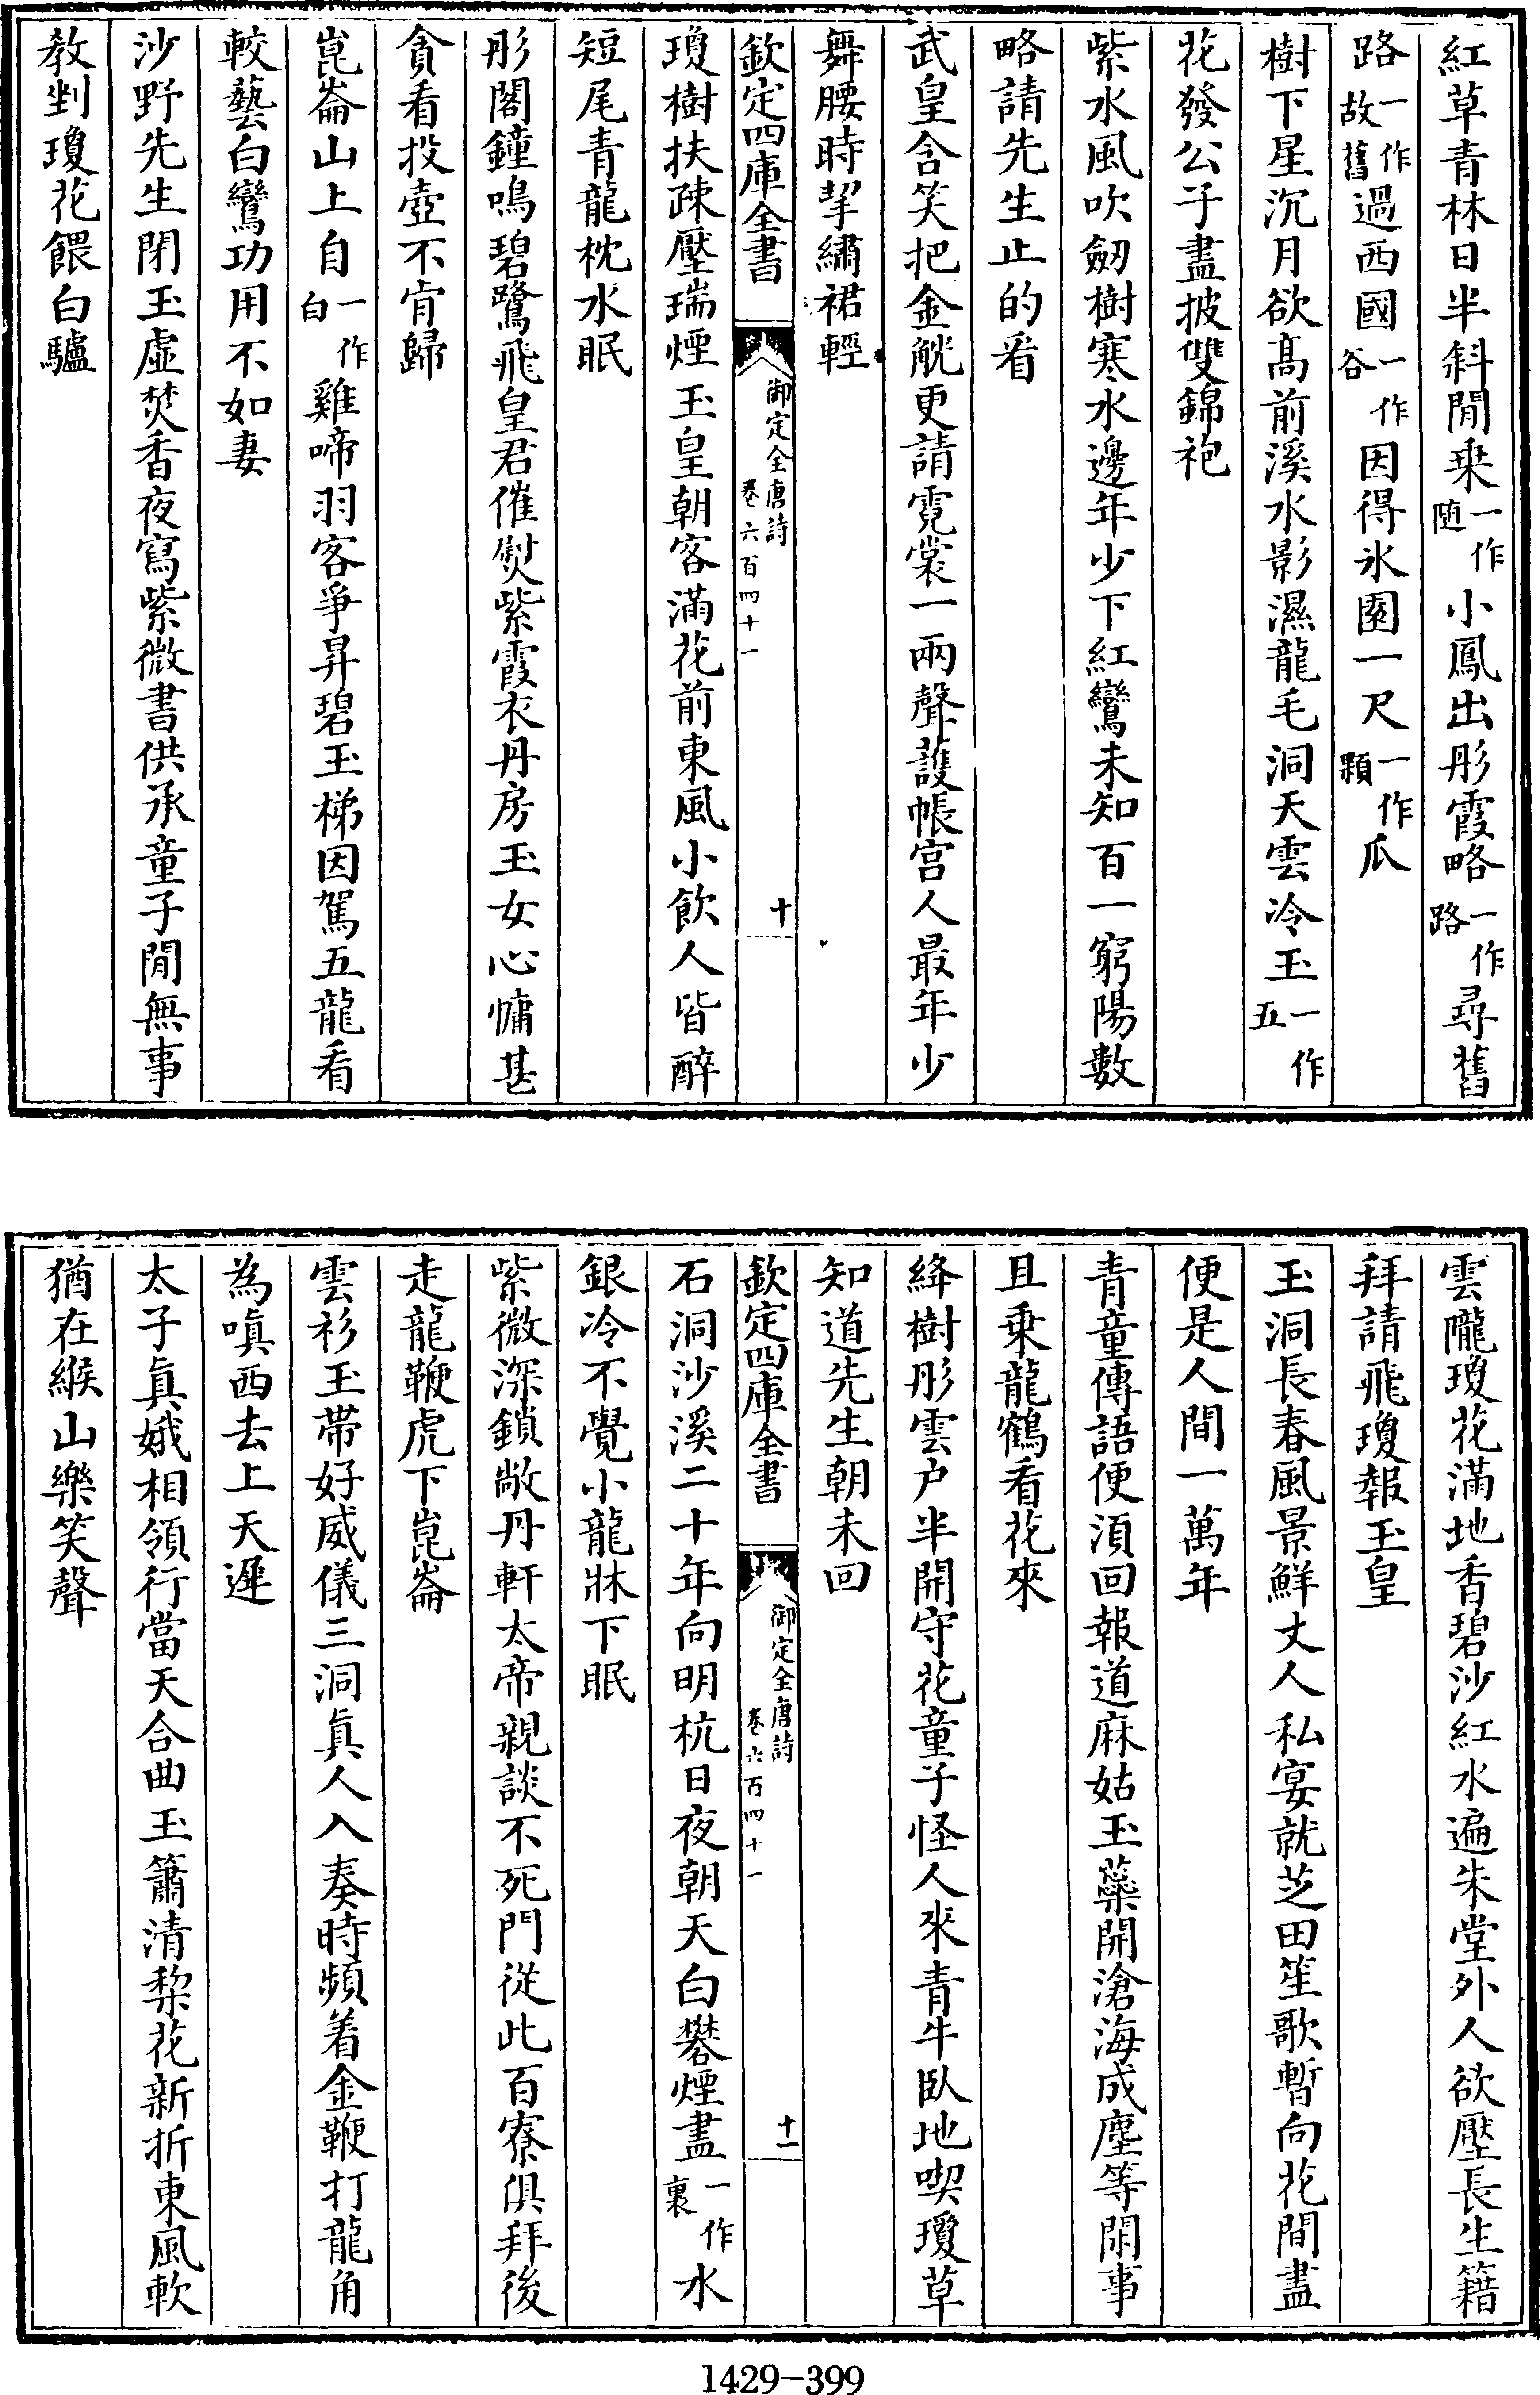 紅草青林日半斜閒乗一作随小鳳出彤霞略一作路尋舊
路一作故舊過西國一作谷因得氷園一尺一作顆瓜
樹下星沉月欲髙前溪水影濕龍毛洞天雲冷玉一作五
花發公子盡披雙錦袍
紫水風吹劒樹寒水邊年少下紅鸞未知百一窮陽數
略請先生止的看
武皇含笑把金觥更請霓裳一兩聲護帳宫人最年少
舞腰時挈繡裙輕
欽定四庫全書 御定全唐詩 卷六百四十一 十
瓊樹扶疎壓瑞煙玉皇朝客滿花前東風小飲人皆醉
短尾青龍枕水眠
彤閣鐘鳴碧鷺飛皇君催熨紫霞衣丹房玉女心慵甚
貪看投壺不肯歸
崑崙山上自一作白雞啼羽客爭昇碧玉梯因駕五龍看
較藝白鸞功用不如妻
沙野先生閉玉虚焚香夜寫紫微書供承童子閒無事
教剉瓊花餵白驢
雲隴瓊花滿地香碧沙紅水遍朱堂外人欲壓長生籍
拜請飛瓊報玉皇
玉洞長春風景鮮丈人私宴就芝田笙歌暫向花間盡
便是人間一萬年
青童傳語便湏回報道麻姑玉蘂開滄海成塵等閑事
且乗龍鶴看花來
絳樹彤雲户半開守花童子怪人來青牛臥地喫瓊草
知道先生朝未回
欽定四庫全書 御定全唐詩 卷六百四十一 十一
石洞沙溪二十年向明杭日夜朝天白礬煙盡一作裏水
銀冷不覺小龍牀下眠
紫微深鎖敞丹軒太帝親談不死門從此百寮俱拜後
走龍鞭虎下崑崙
雲衫玉帶好威儀三洞真人入奏時頻着金鞭打龍角
為嗔西去上天遲
太子真娥相領行當天合曲玉簫清棃花新折東風軟
猶在緱山樂笑聲
1429-399